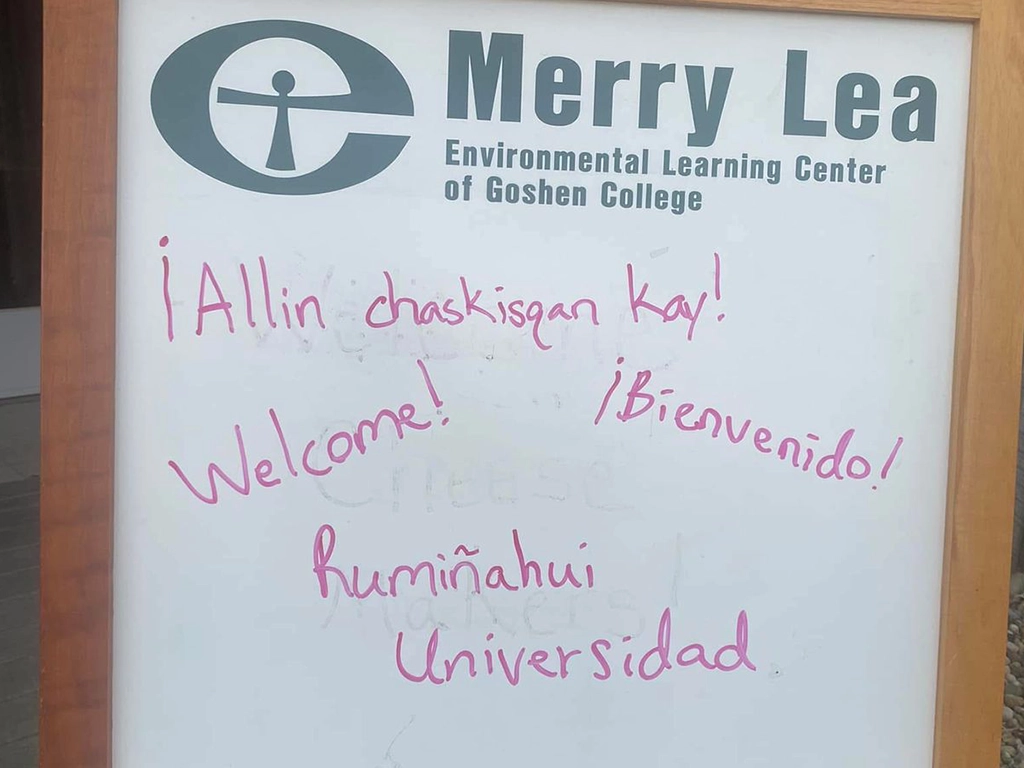 Merry Lea
Environmental Learning Center
of Goshen College
¡Allin chaskisqan kay!
Welcome! ¡Bienvenido!
Rumiñahui
Universidad
Welcome
Cheese
Makers!